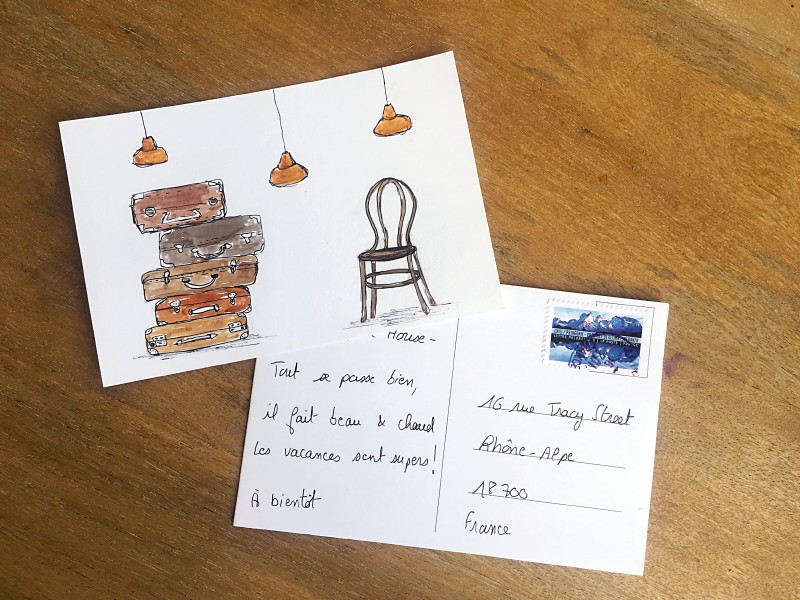 - House -
Tout se passe bien,
il fait beau & chaud
Les vacances sont supers!
À bientôt
16 rue Tracy Street
Rhône-Alpe
18700
France